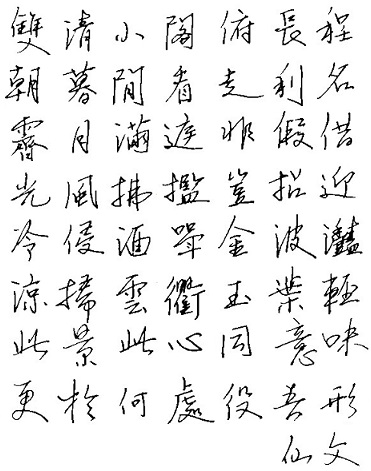 雙清小閣俯長程
朝暮閒看走利名
霽月滿庭非假借
光風拂檻豈招迎
冷侵酒斝金波灩
涼掃雲衢玉葉輕
此景此心同意味
更於何處役吾形
仙文